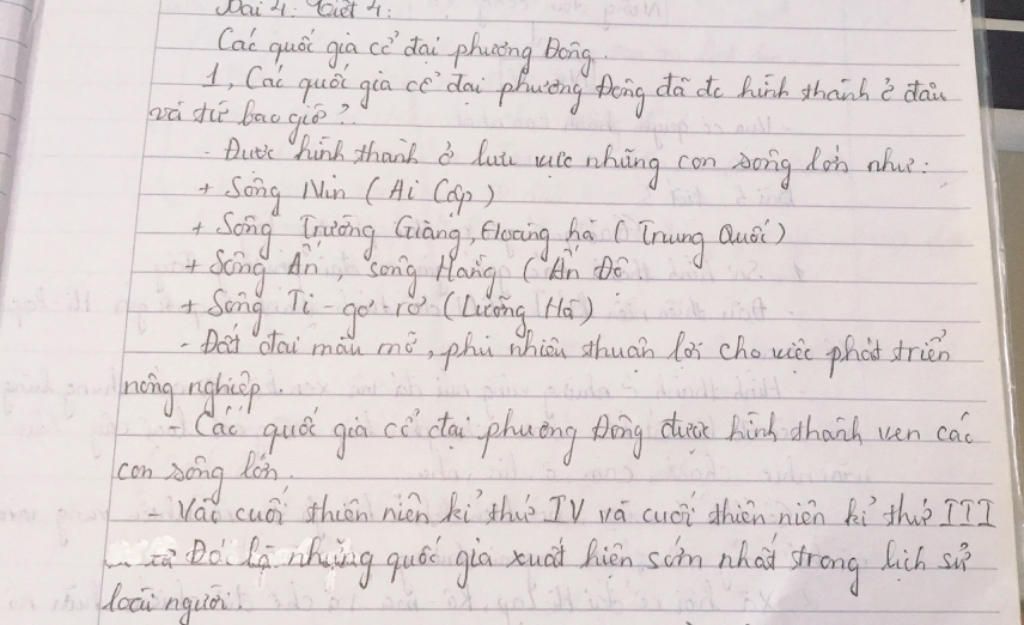 Bài 4: Tiết 4:
Các quốc gia cổ đại phương Đông.
1, Các quốc gia cổ đại phương Đông đã đc hình thành ở đâu
và từ bao giờ?
- Được hình thành ở lưu vực những con sông lớn như:
+ Sông Nin (Ai Cập)
+ Sông Trường Giang, Hoàng hà (Trung Quốc)
+ Sông Ấn, sông Hằng (Ấn Độ
+ Sông Ti-gơ-rơ (Lưỡng Hà)
- Đất đai màu mỡ, phì nhiêu thuận lợi cho việc phát triển
nông nghiệp.
- Các quốc gia cổ đại phương Đông được hình thành ven các
con sông lớn.
- Vào cuối thiên niên kỉ thứ IV và cuối thiên niên kỉ thứ III
Đó là những quốc gia xuất hiện sớm nhất trong lịch sử
loài người